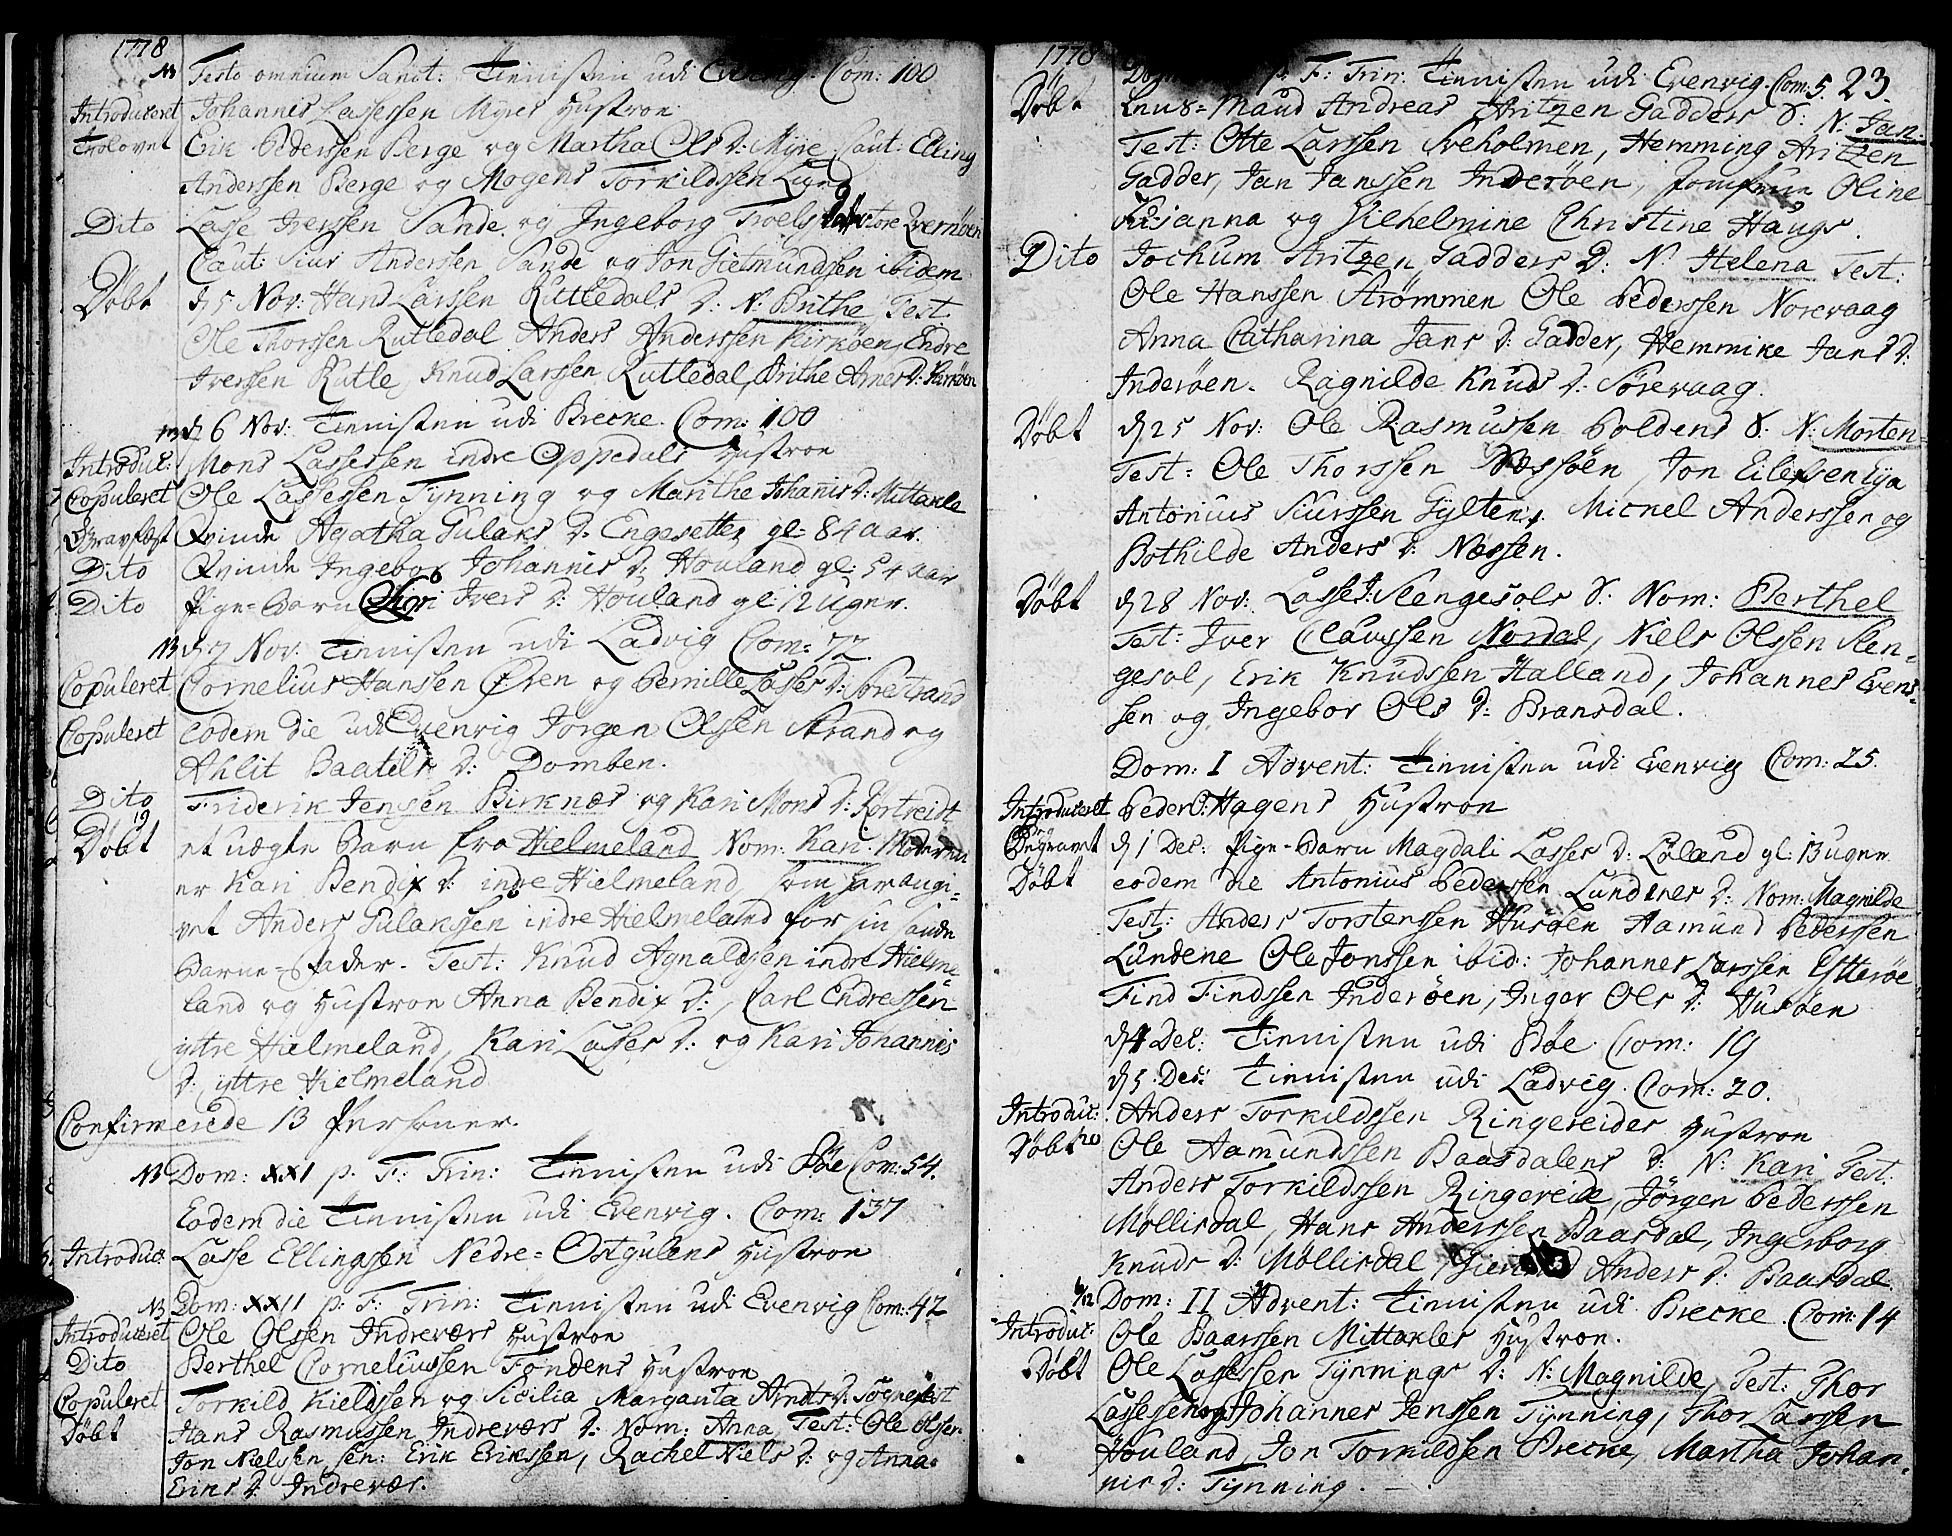 1778
NB Festo omnium Sanct: Tienisten udi Evenvig. Com: 100
Introduceret Johannes Lassessen Myres Hustroe
Trolovet Erik Pederssen Berge og Martha Ols D: Myre. Caut: Elling
Anderssen Berge og Mogens Torkildssen Lund
Dito Lasse Iverssen Sande og Ingeborg Troels store Qvernøen
Caut: Siur Anderssen Sande og Jon Gietmundssen ibidem
Døbt d 5 Nov: Hans Larssen Rutledals D. N: Brithe Test
Ole Thorssen Rutledal Anders Anderssen Kirkøen, Endre
Iverssen Rutle, Knud Larssen Rutledal, Brithe Arnes D: Kirkøen
d 6 Nov: Tienisten udi Brecke. Com: 100
Introduc: Mons Lassessen indre Oppedals Hustroe
Copuleret Ole Lassessen Tynning og Marithe Johannis D: Mittakle
Begravet Qvinde Agatha Gulaks D. Engesetter gl: 84 aar.
Dito Qvinde Ingebor Johannis D: Houland gl: 54 aar
Dito Pige-Barn Ivers D: Houland gl: 12 uger.
NB d 7 Nov: Tienisten udi Ladvig Com: 72.
Copuleret Cornelius Hanssen Øren og Pernille Lasses D: Sørestrand
Copuleret eodem die udi Evenvig Jørgen Olssen Strand og
Ahlit Baatels D: Domben.
Dito Friderik Jenssen Birknes og Kari Mons D: Rørtveidt
Døbt et uægte Barn fra Hielmeland Nom: Kari. Moderen
er Kari Bendix D: indre Hielmeland, som har angi-
vet Anders Gulakssen indre Hielmeland for sin sande
Barne-Fader. Test: Knud Agnaldssen indre Hielme
land og Hustroe Anna Bendix D:, Carl Endressen
yttre Hielmeland, Kari Lasses D: og Kari Johannis
D: yttre Hielmeland
Confirmerede 13 Personer.
NB Dom: XXI p. F: Trin: Tienisten udi Bøe Com: 54.
Eodem die Tienisten udi Evenvig. Com: 137
Introduc: Lasse Ellingssen Nedre-Ostgulens Hustroe
NB Dom: XXII p: F: Trin: Tienisten udi Evenvig Com: 42
Introduceret Ole Olssen Indreværs Hustroe
Dito Berthel Corneliussen Fondens Hustroe
Copuleret Torkild Kieldssen og Sicilia Margareta Arnts D: Sognefest
Døbt Hans Rasmussen Indreværs D: Nom: Anna Test: Ole Olssen
Jon Nielssen sen: Erik Erikssen, Rachel Niels D: og Anna
Eriks D: Indrevær.
1778
p. F: Trin: Tienisten udi Evenvig. Com: 5. 23.
Døbt Knus-Mand Andreas Fritzen Gadders S: N: Jan.
Test: Otte Larssen Sveholmen, Hemming Fritzen
Gadder, Jan Janssen Inderøen, Jomfrue Oline
Susanna og Vilhelmine Christine Haugs.
Dito Jochum Fritzen Gadders D: N. Helena Test:
Ole Hanssen Strømmen Ole Pederssen Norevaag
Anna Catharina Jans D: Gadder, Hemmike Jans D:
Inderøen. Ragnilde Knuds D: Sørevaag.
Døbt d 25 Nov: Ole Rasmussen Poldens S: N: Morten
Test: Ole Thorssen Næssøen Jon Eilefsen Rya
Antonius Siurssen Gylten, Mickel Anderssen og
Bothilde Anders D: Nessen.
Døbt d 28 Nov: Lasse I: Slengesols S: Nom: Berthel
Test: Iver Claussen Nordal, Niels Olssen Slen-
gesol, Erik Knudssen Halland, Johannes Evens-
sen og Ingebor Ols D: Bransdal.
Dom: I Advent: Tienisten udi Evenvig Com: 25.
Introduceret Peder Hagens Hustroe
Begravet d 1 Dec: Pige-Barn Magdali Lasses D: Loland gl: 13 uger
Døbt eodem die Antonius Pederssen Lundenes D: Nom: Magnilde
Test: Anders Torstenssen Husøen Aamund Pederssen
Lundene Ole Jonssen ibid: Johannes Larssen Ytterøe
Find Findssen Inderøen, Inger Ols D: Husøen
d 4 Dec: Tienisten udi Bøe. Com: 19
d 5 Dec: Tienisten udi Ladvig. Com: 20.
Introduc: Anders Torkildssen Ringereides Hustroe
Døbt Ole Aamundssen Baasdalens D: N: Kari Test:
Anders Torkildssen Ringereide, Jørgen Pederssen
Møllisdal, Hans Anderssen Baasdal, Ingerborg
Knuds D: Møllisdal, Anders D: Baasdal
Dom: II Advent: Tienisten udi Brecke Com: 14
Introduc: Ole Baarssen Mittakles Hustroe.
Døbt Ole Lassessen Tynnings D: N: Magnilde, Test: Thor
Lassessen og Johannes Jenssen Tynning, Thor Larssen
Houland, Jon Torkildssen Brecke, Martha Johan-
nis D: Tynning.